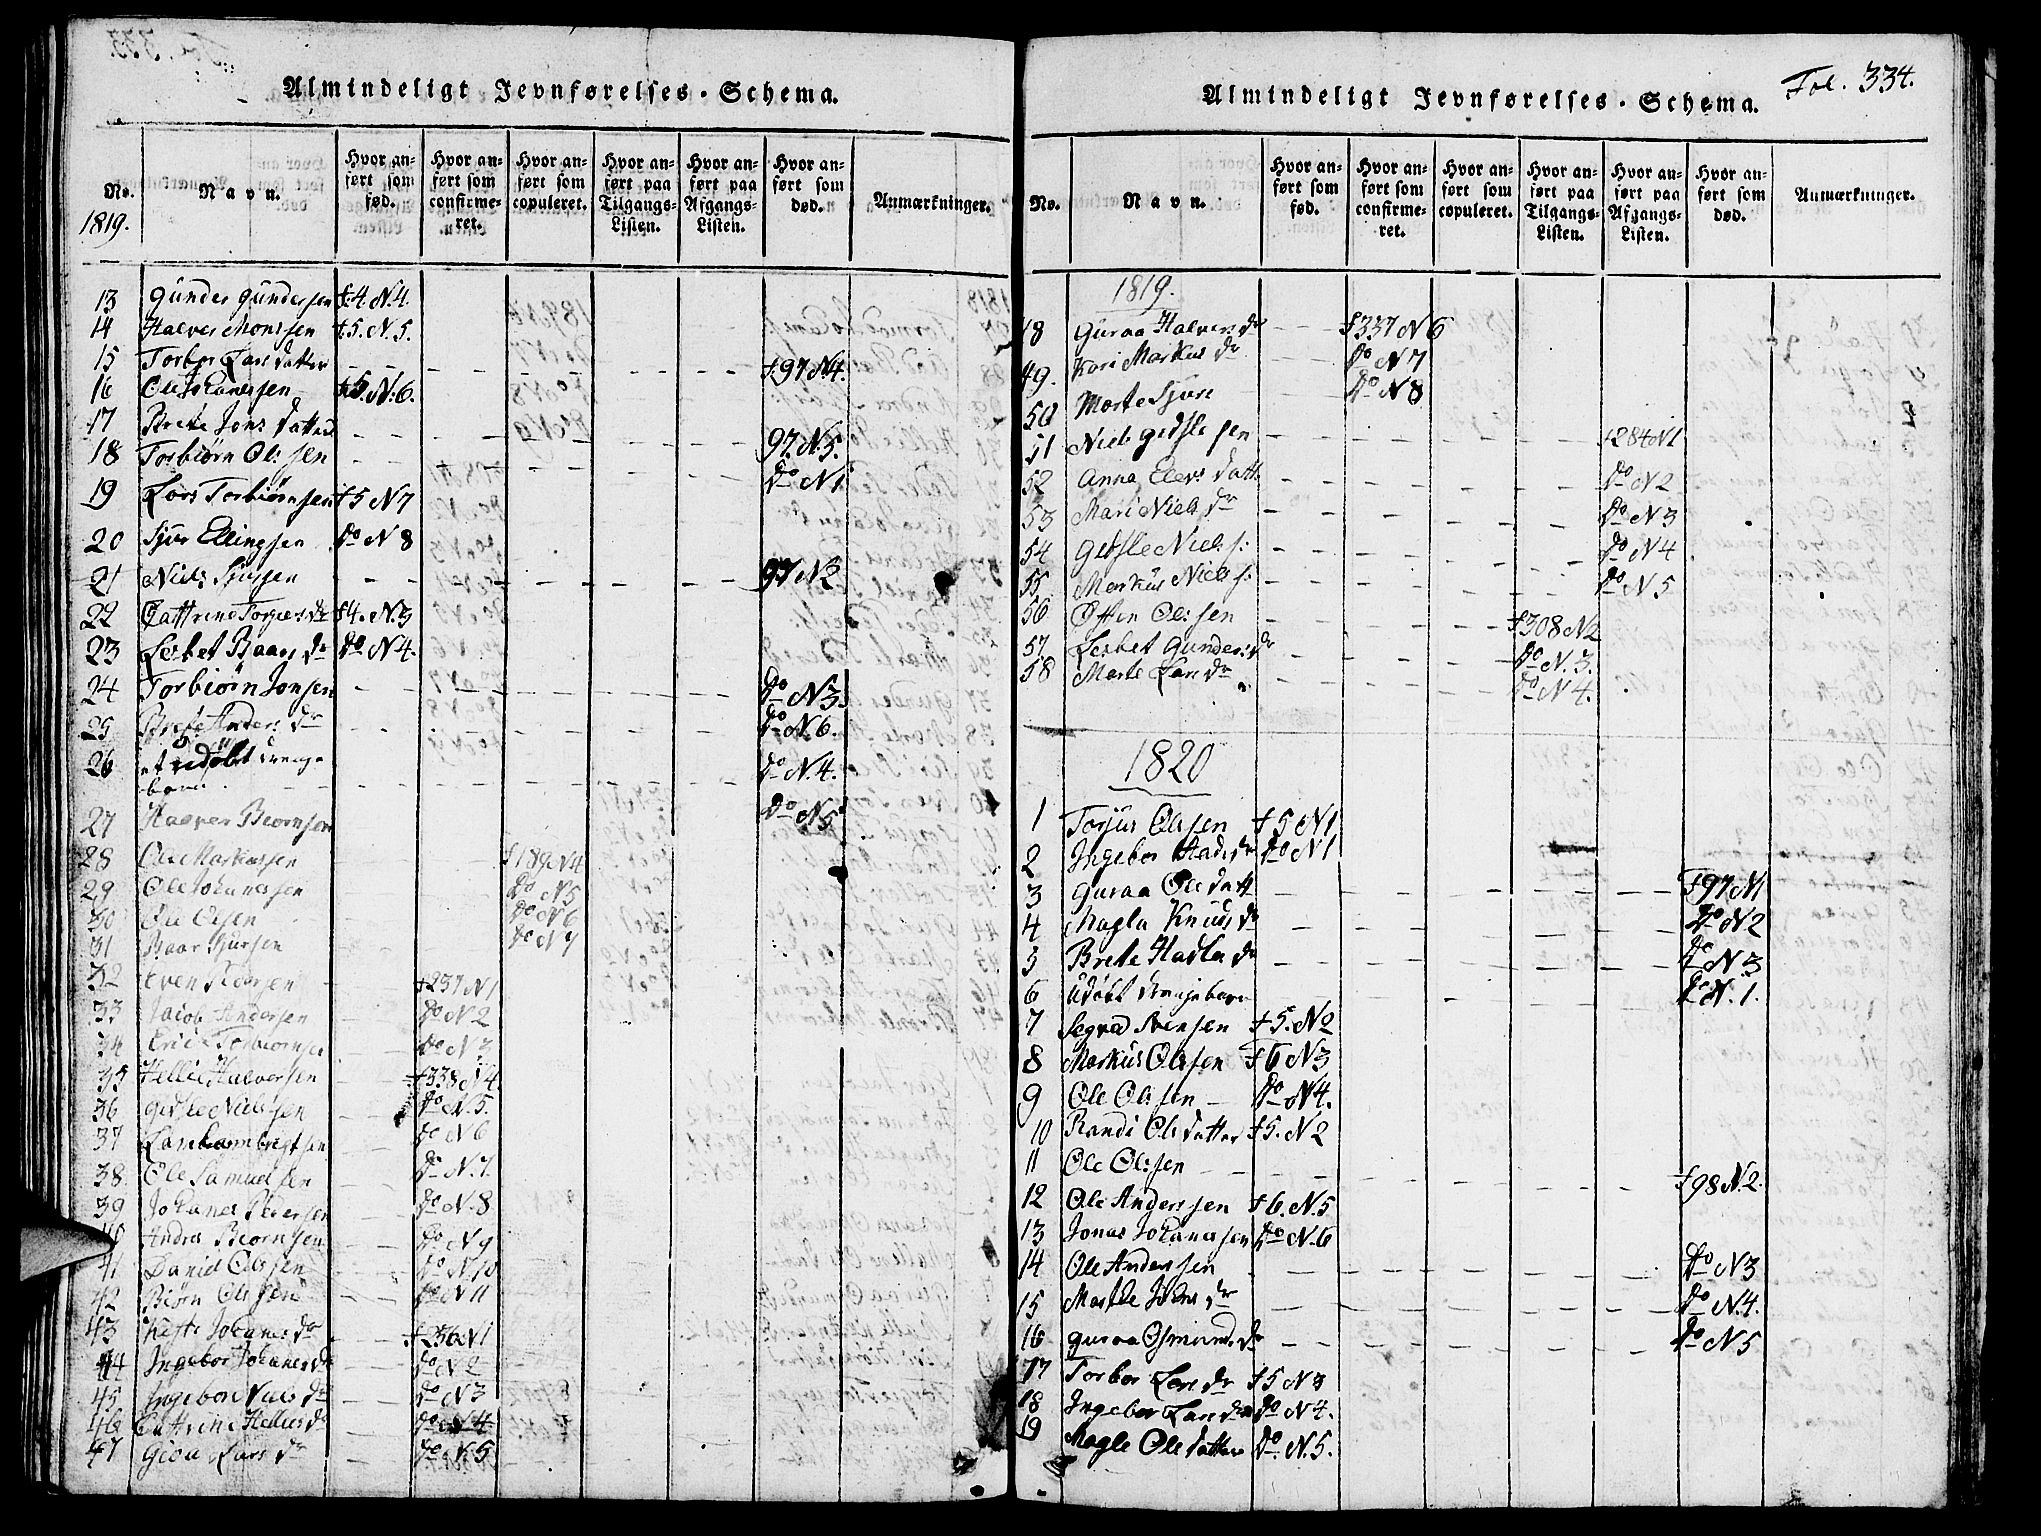 Almindeligt Jevnførelses-Schema.
No. Navn. Hvor anført som fød. Hvor anført som confirmeret. Hvor anført som copuleret. Hvor anført paa Tilgangs-Listen. Hvor anført paa Afgangs-Listen. Hvor anført som død. Anmærkninger.
1819.
13 Gunder Gundersen f. 4. N. 4.
14 Halver Monssen f. 5. N. 5.
15 Torbor Lars datter f. 97 N. 4.
16 Ole Johanessen f. 5. N. 6.
17 Brete Jons datter 97. N. 5.
18 Torbiørn Olssen Do N 1
19 Lars Torbiørnsen f 5 N 7
20 Sjur Ellingsen Do N 8
21 Niels Sjursen 97 N 2
22 Cattrine Torgers dr f 4. N. 3
23 Lesbet Baars dr Do N 4.
24 Torbiørn Jonsen Do N 3.
25 Brete Anders dr Do N. 6.
26 et udøbt drenge barn Do N. 4.
27 Halver Biørnsen Do N 5
28 Ole Markussen f 189 N 4
29 Ole Johanessen Do N 5
30 Ole Olsen Do N 6
31 Baar Sjursen Do N 7
32 Even f 237 N 1
33 Jacob Andersen Do N 2
34 Eric Torbiørnsen Do N 3
35 Hellie Halversen f 338 N 4
36 Gidsle Nielssen Do N. 5.
37 Lars Do N 6
38 Ole Samuelsen Do N. 7.
39 Johanes Pedersen Do N. 8
40 Anders Biørnsen Do N 9
41 Daniel Olssen Do N 10
42 Biørn Olssen Do N 11
43 Johanes dr f 236 N 1
44 Ingebor Johanes dr Do N 2
45 Ingebor Niels dr Do N 3
46 Cattrine Hellies dr Do N 4
47 Gioa Lars dr Do N. 5
Almindeligt Jevnførelses-Schema.
Fol. 334.
No. Navn. Hvor anført som fød. Hvor anført som confirmeret. Hvor anført som copuleret. Hvor anført paa Tilgangs-Listen. Hvor anført paa Afgangs-Listen. Hvor anført som død. Anmærkninger.
1819.
48 Guraa Halvers dr f 337 N 6
49. Kari Markus dr Do N 7
50 Marte Sjurs Do N 8
51 Niels Gidslesen f 284 N 1
52 Anna Elevs datt Do N 2
53 Mari Niels dr Do N 3
54 Gidsle Niels s: Do N 4
55 Markus Niels s: Do N 5
56 Offen Olssen f 308 N 2
57 Lesbet Gunders dr Do N. 3.
58 Marte Lars dr Do N 4.
1820
1 Torjus Olssen f 5 N 1
2 Ingebor dr Do N 1
3 Guraa Ole datt f 97 N 1
4 Magla Knuds dr Do N 2
5 Brete Hadle dr Do N 3
6 Udøbt drengebarn Do N. 1.
7 Segvad Svensen f 5. N 2
8 Markus Olssen f 6 N 3
9 Ole Olssen Do N 4.
10 Randi Ols datter f 5. N 2
11 Ole Olssen f 98 N. 2.
12 Ole Anderssen f 6. N. 5
13 Jonas Johanessen Do N. 6
14 Ole Anderssen Do N 3
15 Marthe Johns dr Do N. 4.
16 Guraa Osmunds dr Do N 5
17 Torbor Lars dr f 5 N 3
18 Ingebor Lars dr Do N 4.
19 Magle Ole datter Do. N. 5.